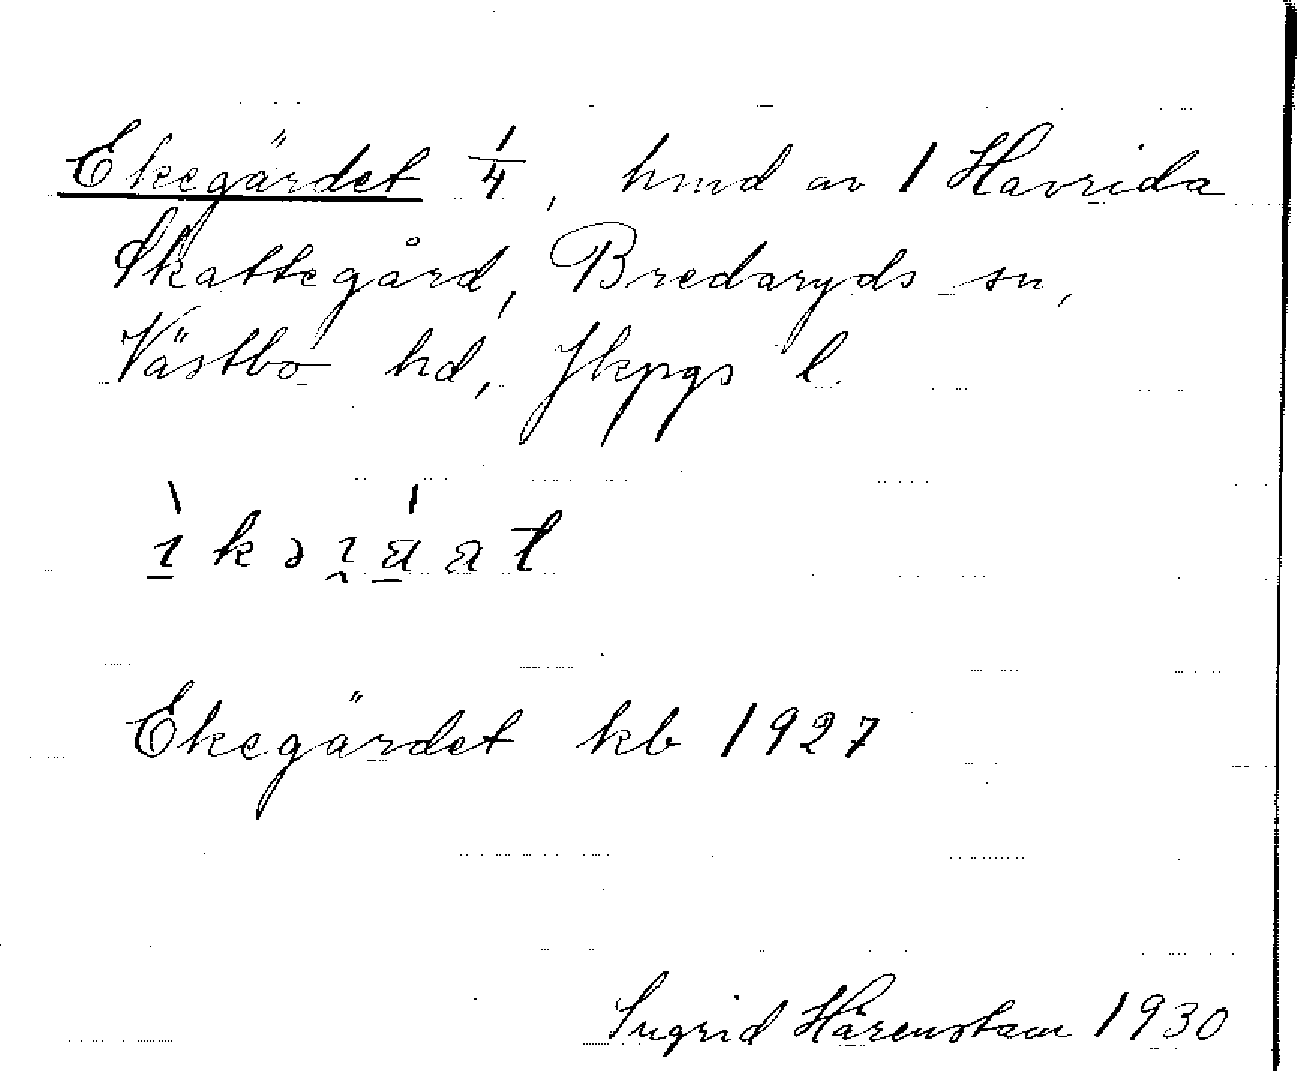 Ekegärdet 1/4, hmd av 1 Havrida
Skattegård, Bredaryds sn,
Västbo hd, Jkpgs l.
Ekegärdet kb 1927
Ingrid Hårenstam 1930